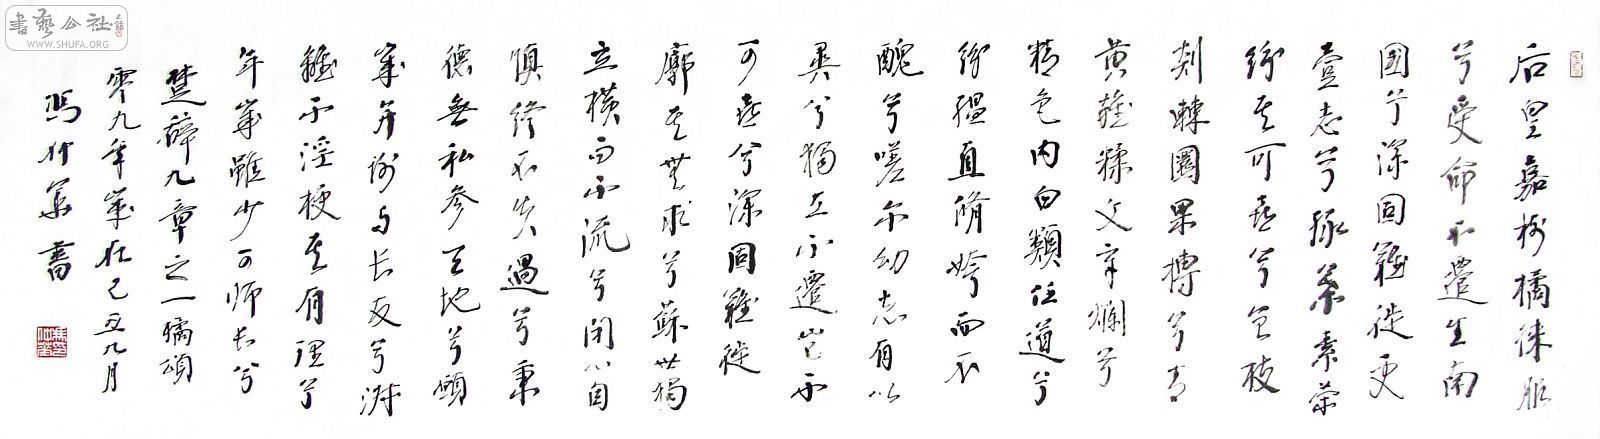 書藝公社
WWW.SHUFA.ORG
后皇嘉树橘徕服
兮受命不遷生南
國兮深固難徙更
壹志兮緑葉素榮
紛其可喜兮曾枝
剡棘圜果摶兮青
黄雜糅文章爛兮
精色内白類任道兮
紛緼宜脩姱而不
醜兮嗟尔幼志有以
異兮獨立不遷豈不
可喜兮深固難徙
廓其無求兮蘇世獨
立横而不流兮閉心自
慎終不失過兮秉
德無私參天地兮願
歲并谢与长友兮淑
離不淫梗其有理兮
年歲雖少可师长兮
楚辭九章之一橘頌
零九年歲在己丑九月
冯仲 書